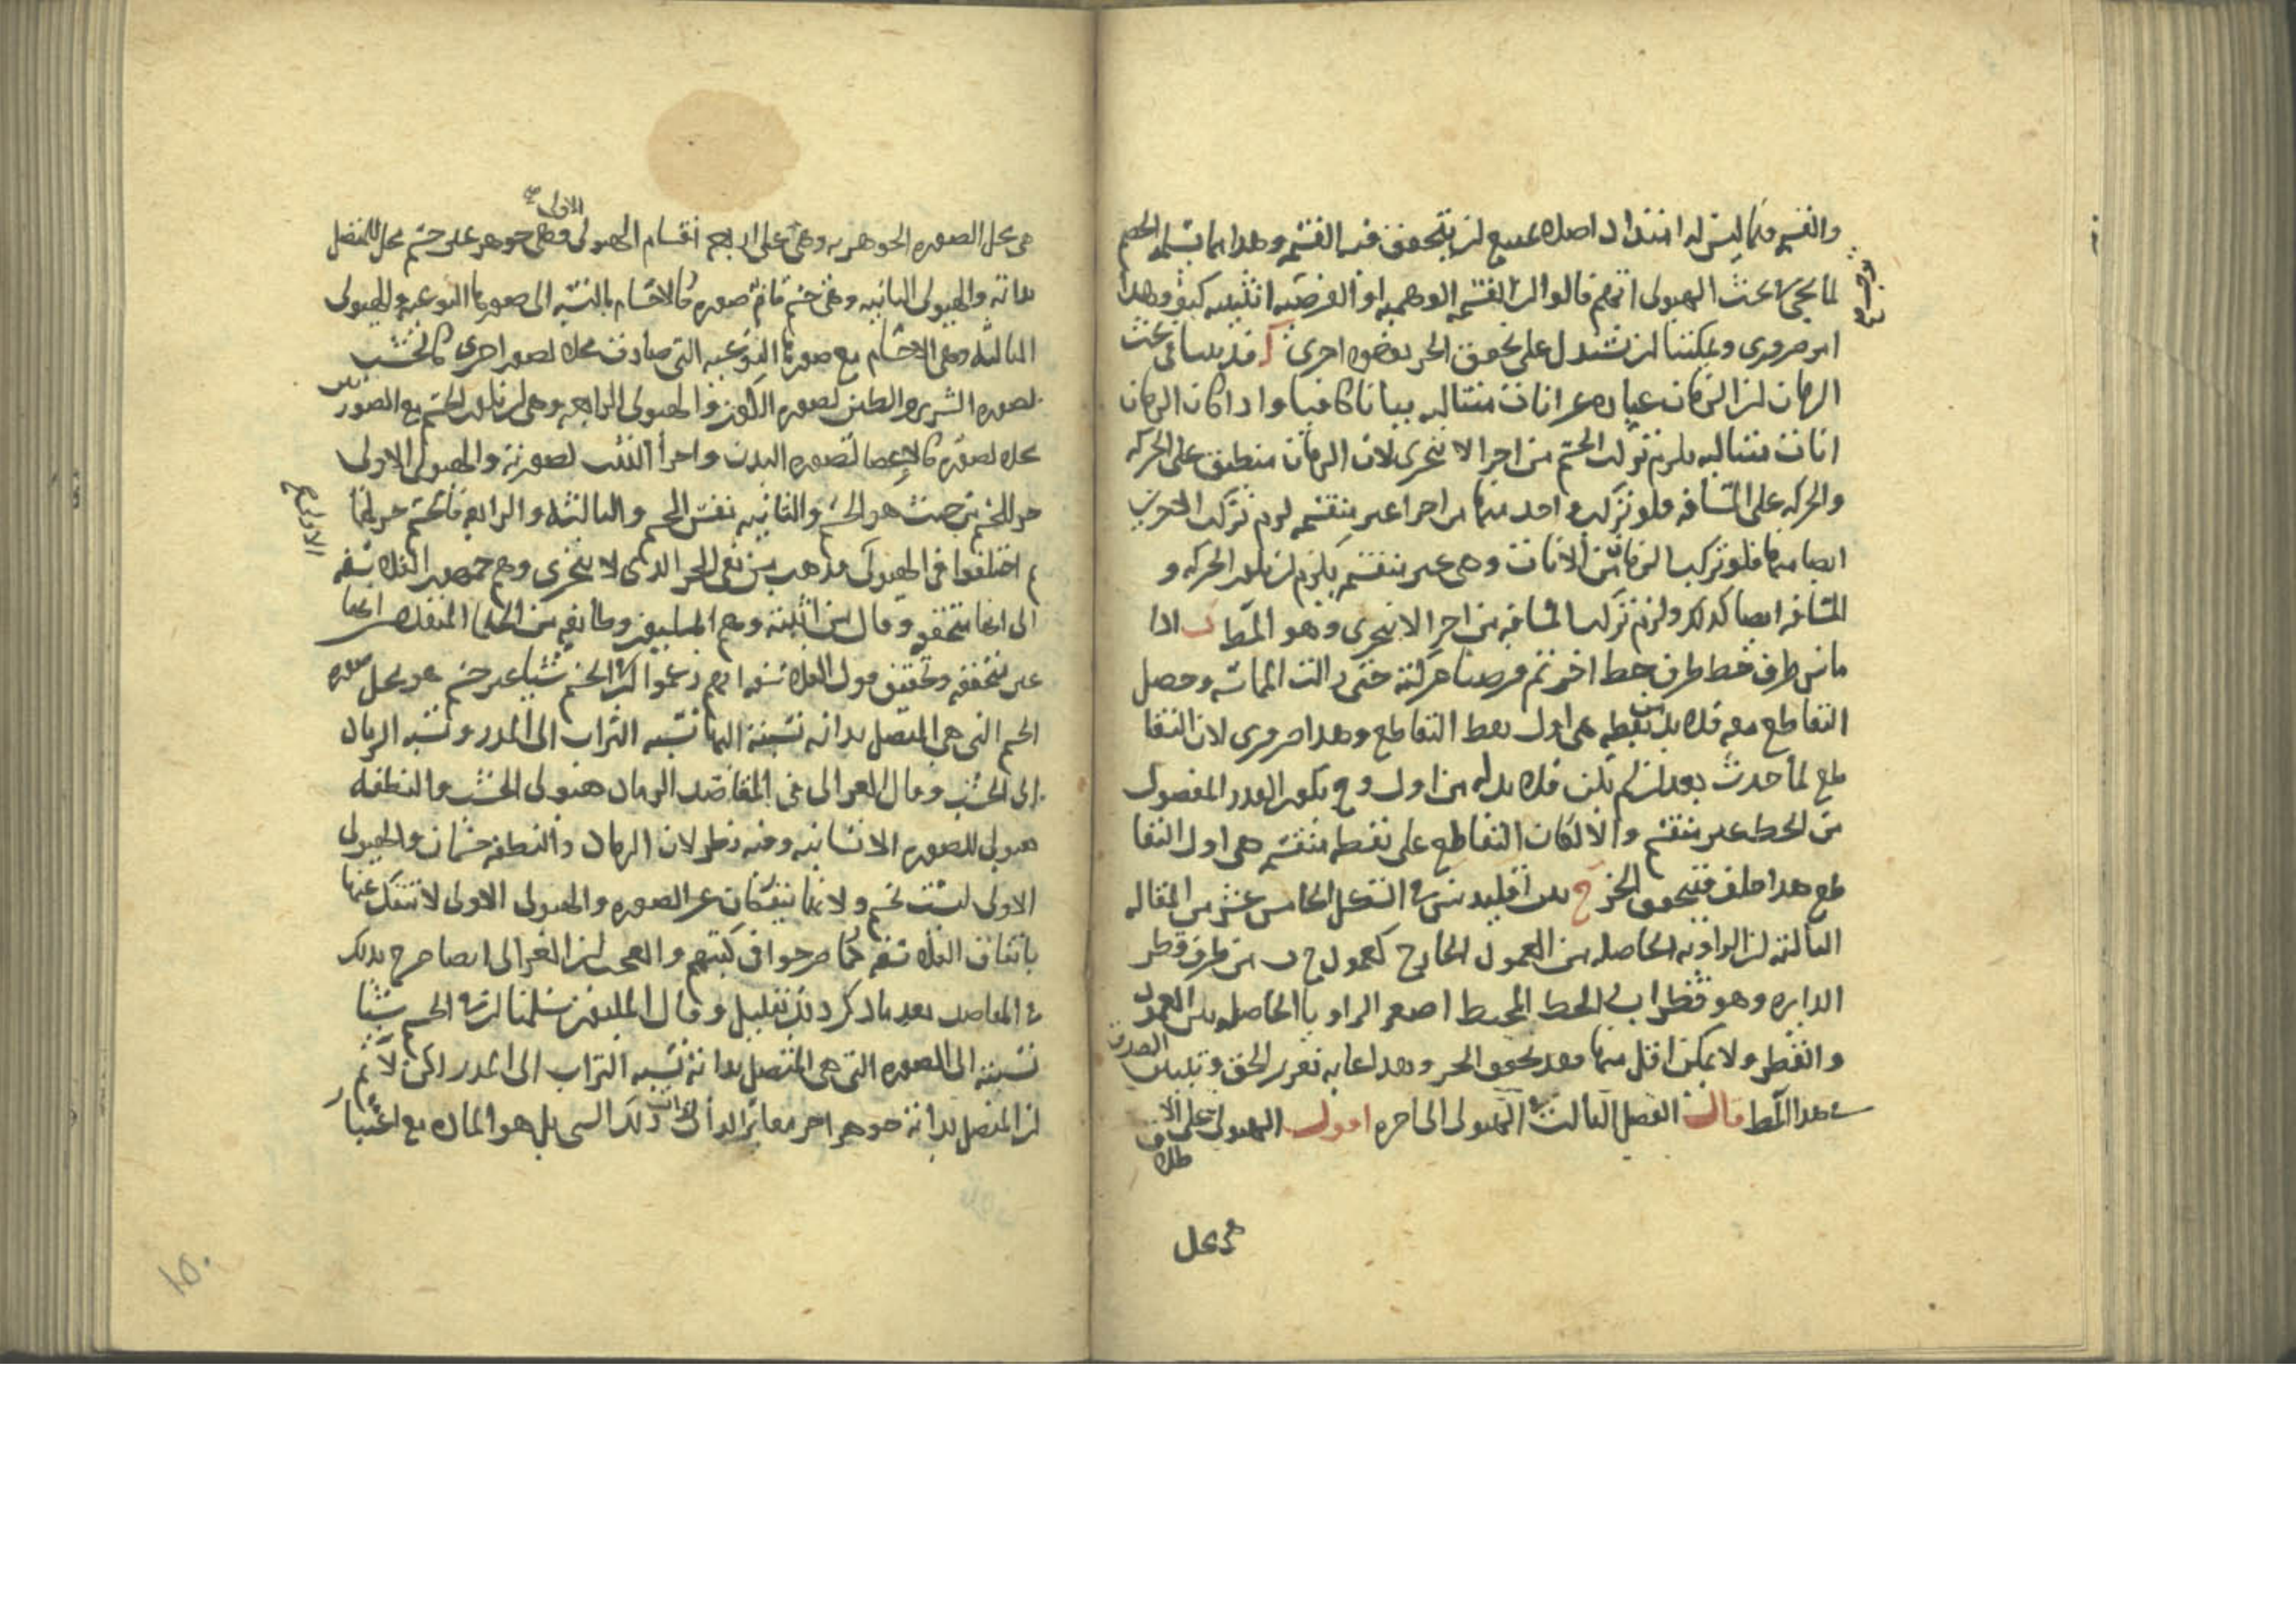 والقسمة فيما ليس له امتداد اصلا ممتنع لن يتحقق فيه القسمة وهذا مما تسلمه الخصم
لما يجى فى بحث الهيولى انهم قالوا ان القسمة الوهمية او الفرضية اثنينية كيف وهذا
امر ضرورى ويمكننا لن نستدل على تحقق الجز بوجوه اخرى آ قد بينا فى بحث
الزمان لن الزمان عبارة عن انات متتالية بيانا كافيا واذا كان الزمان
انات متتالية يلزم تركب الجسم من اجزا لا تتجزى لان الزمان منطبق على الحركة
والحركة على المسافة فلو تركب واحد منها من اجزا غير منقسمة لزم تركب الاخرين
ايضا منها فلو تركب الزمان من الانات وهى غير منقسمة يلزم لن يكون الحركة و
المسافة ايضا كذلك ولزم تركب المسافة من اجزا لا تتجزى وهو المط ب اذا
ماس طرف خط طرف خط اخر ثم فرضنا حركته حتى زالت المماسة وحصل
التقاطع معه فلا بد من نقطة هى اول نقط التقاطع وهذا ضرورى لان التقا
طع لما حدث بعد لن لم يكن فلا بد له من اول وح يكون القدر المفصول
من الخط غير منقسم والا لكان التقاطع على نقطة منقسمة هى اول التقا
طع هذا خلف فيتحقق الجز ج بين اقليدس فى الشكل الخامس عشر من المقالة
الثالثة لن الزاوية الحاصلة من العمود الخارج كعمود ج ب من طرف قطر
الدايرة وهو قطر اب والخط المحيط اصغر الزوايا الحاصلة بين العمود
والقطر ولا يمكن اقل منها فقد تحقق الجز وهذا غاية تقرير الحق وتبيان الصدق
فى هذا المط قال الفصل الثالث فى الهيولى الى اخره اقول الهيولى على الا
طلاق
هى محل
هى محل الصورة الجوهرية وهى على اربعة اقسام الهيولى الاولى وهى جوهر غير جسم محل للمتصل
بذاته والهيولى الثانية وهى جسم قام به صورة كالاجسام بالنسبة الى صورها النوعية والهيولى
الثالثة وهى الاجسام مع صورها النوعية التى صارت محلا لصور اخرى كالخشب
لصورة السرير والطين لصورة الكوز والهيولى الرابعة وهى لن يكون الجسم مع الصورتين
محلا لصورة كالاعضا لصورة البدن واجزا البيت لصورته والهيولى الاولى
جز للجسم من حيث هو الجسم والثانية نفس الجسم والثالثة والرابعة فالجسم جز لهما
ثم اختلفوا فى الهيولى فذهب من نفى الجز الذى لا يتجزى وهم جمهور الفلاسفة
الى انها متحققة وقال من اثبته وهم المليون وطائفة من الحكما المتقدمين انها
غير متحققة وتحقيق قول الفلاسفة انهم زعموا لن فى الجسم شيئا غير جسم هو محل صورة
الجسم التى هى المتصل بذاته نسبته اليها نسبة التراب الى المدر ونسبة الرماد
الى الخشب وقال الغزالى فى المقاصد الرماد هيولى الخشب والنطفة
هيولى للصورة الانسانية وفيه نظر لان الرماد والنطفة جسمان والهيولى
الاولى ليست بجسم ولانهما ينفكان عن الصورة والهيولى الاولى لا تنفك عنها
باتفاق الفلاسفة كما صرحوا فى كتبهم والعجب لن الغزالى ايضا صرح بذلك
فى المقاصد بعد ما ذكر ذلك بقليل وقال المليون سلمنا لن فى الجسم شيئا
نسبته الى الصورة التى هى المتصل بذاته نسبة التراب الى المدر لكن لا ثم
لن المتصل بذاته جوهر اخر مغاير لذات ذلك الشى بل هو المادة مع اعتبار